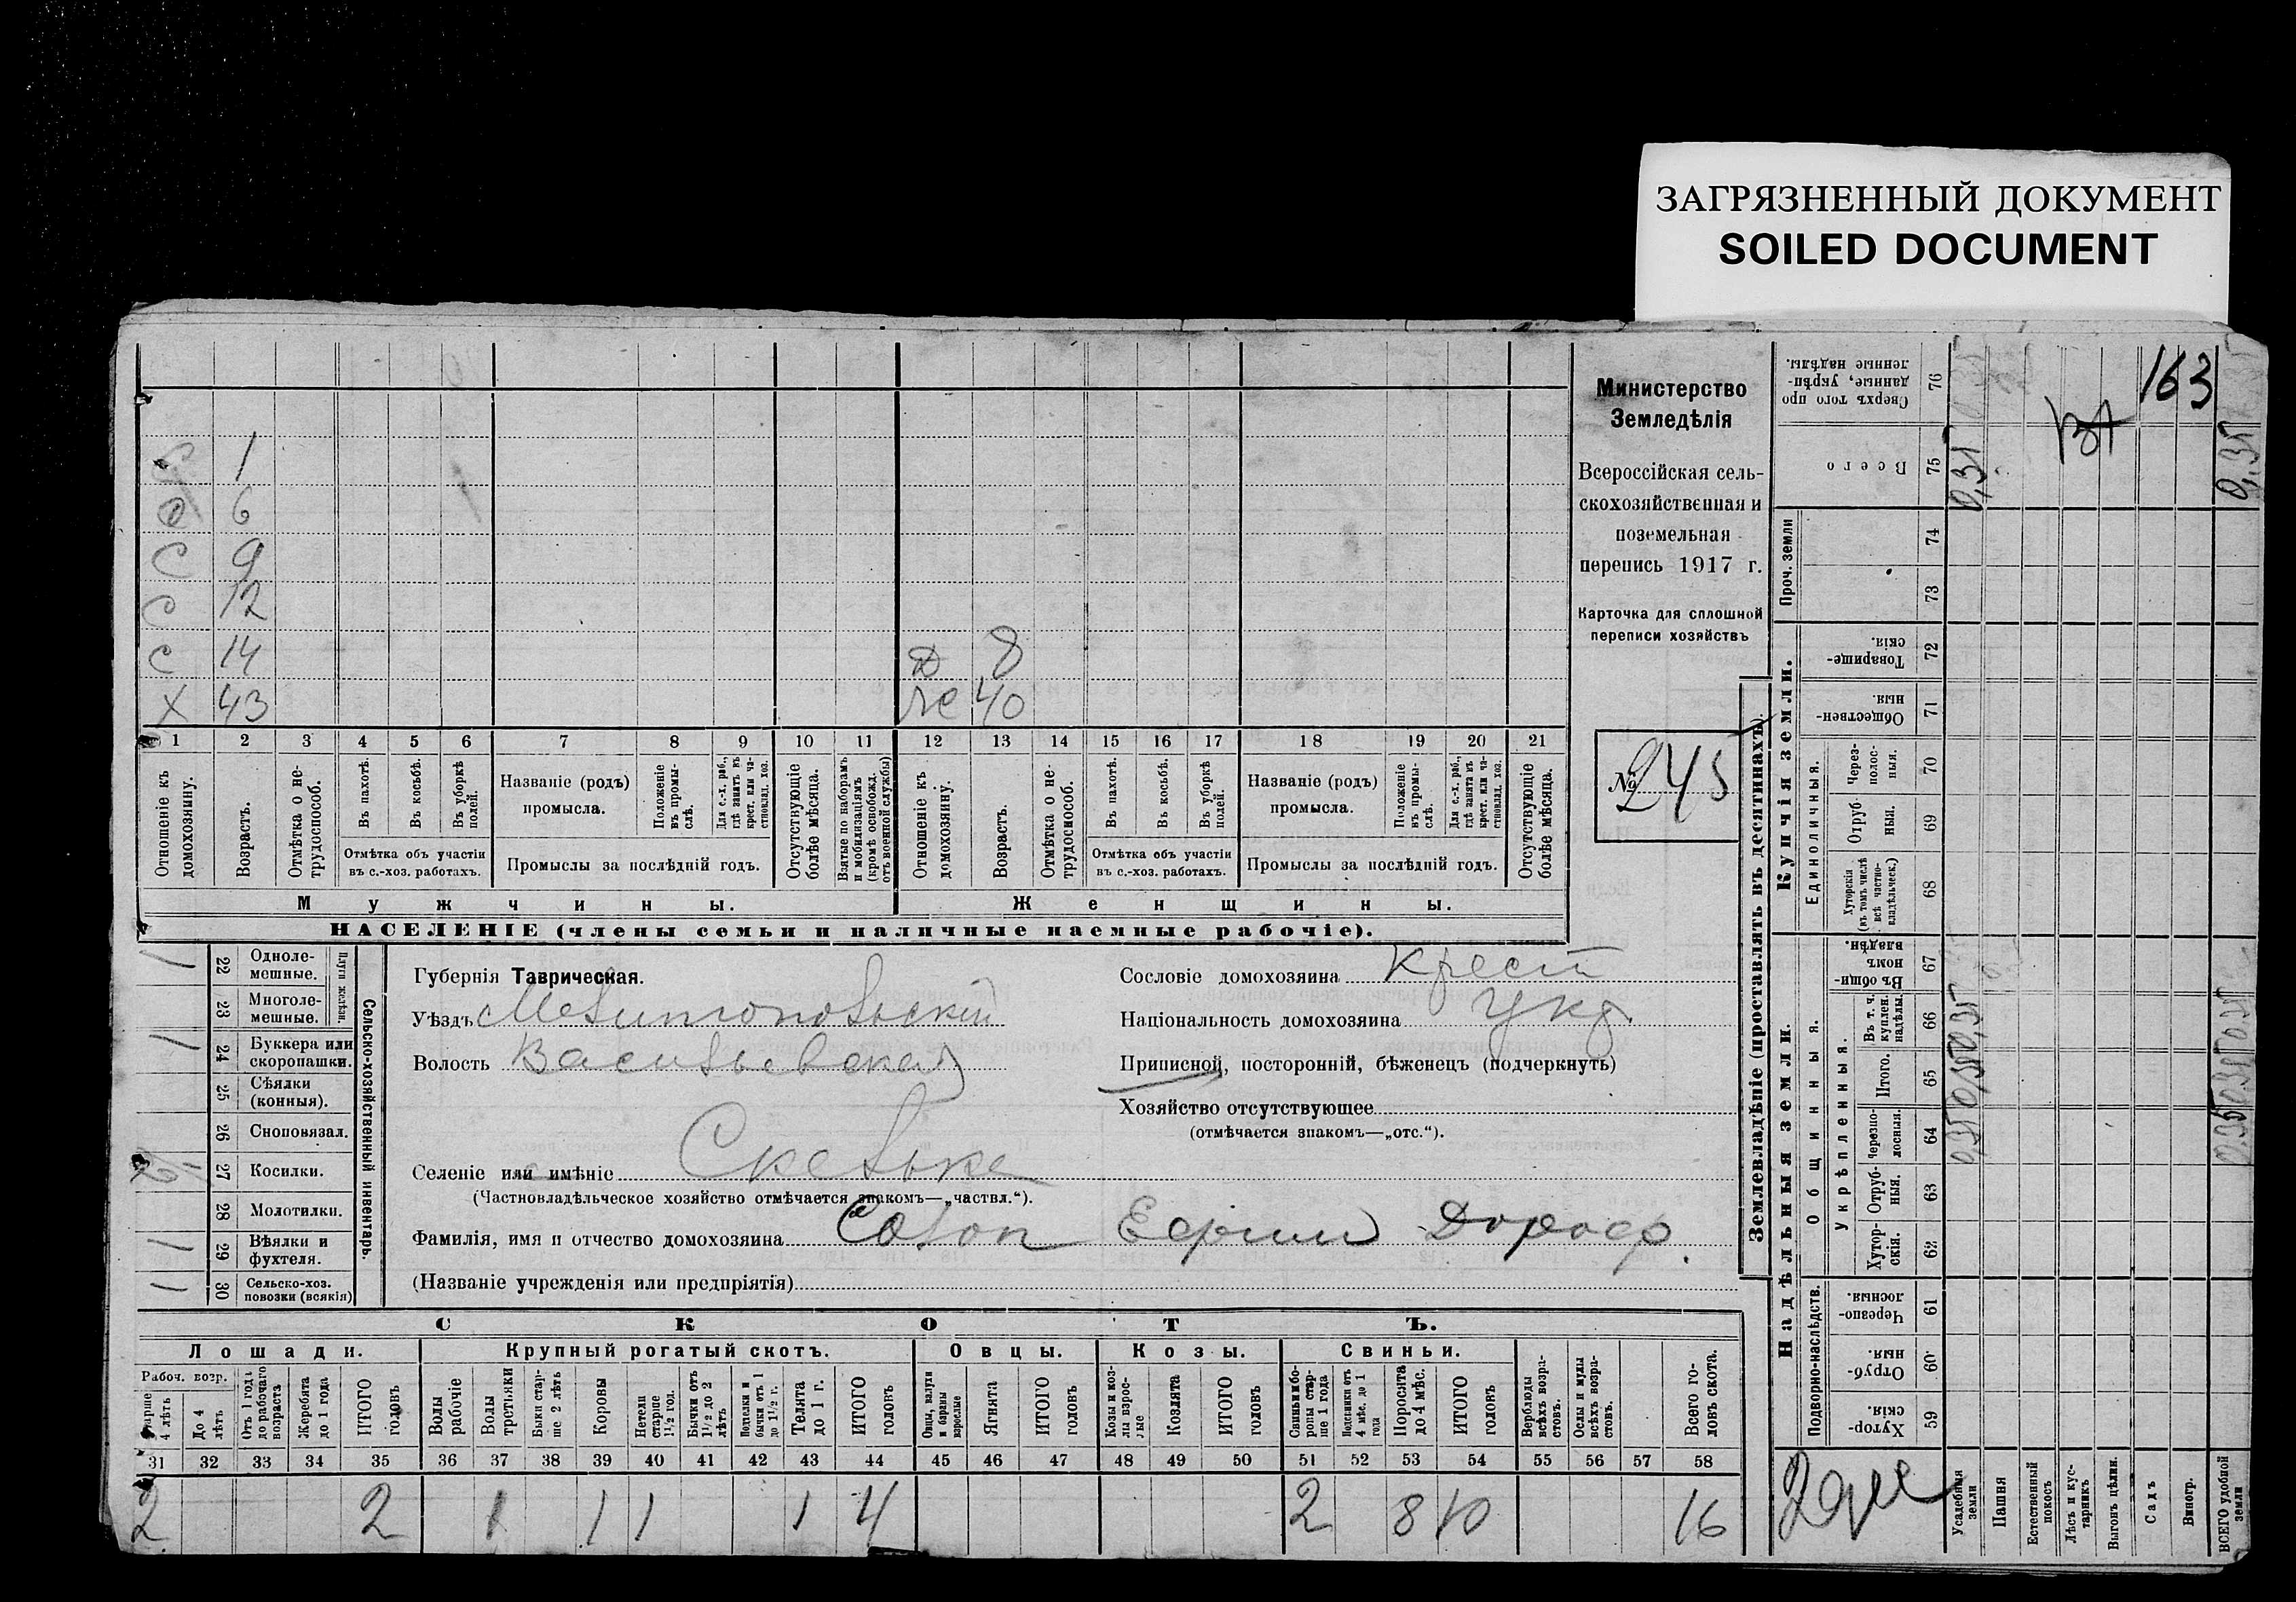 ЗАГРЯЗНЕННЫЙ ДОКУМЕНТ
SOILED DOCUMENT
1
6
С 9
С 12
С 14
Х 43
Д 8
40
1 2 3 4 5 6 7 8 9 10 11 12 13 14 15 16 17 18 19 20 21
Отношеніе къ домохозяину.
Возрастъ.
Отмѣтка о нетрудоспособ.
Въ пахотѣ.
Въ косьбѣ.
Въ уборкѣ полей.
Отмѣтка объ участіи въ с.-хоз. работахъ.
Названіе (родъ) промысла.
Положеніе въ промыслѣ.
Для с.-х. раб., гдѣ занятъ въ крест. или частновлад. хоз.
Промыслы за послѣдній годъ.
Отсутствующіе болѣе мѣсяца.
Взятые по наборамъ и мобилизаціямъ (кромѣ освобожд. отъ военной службы)
Отношеніе къ домохозяину.
Возрастъ.
Отмѣтка о нетрудоспособ.
Въ пахотѣ.
Въ косьбѣ.
Въ уборкѣ полей.
Отмѣтка объ участіи въ с.-хоз. работахъ.
Названіе (родъ) промысла.
Положеніе въ промыслѣ.
Для с.-х. раб., гдѣ занята въ крест. или частновлад. хоз.
Промыслы за послѣдній годъ.
Отсутствующіе болѣе мѣсяца.
Мужчины.
Женщины.
НАСЕЛЕНІЕ (члены семьи и наличные наемные рабочіе).
Министерство
Земледѣлія
Всероссійская сель-
скохозяйственная и
поземельная
перепись 1917 г.
Карточка для сплошной
переписи хозяйствъ
№ 245
Плуги желѣзн.
22 Одноле-мешные. 1
23 Многоле-мешные.
24 Буккера или скоропашки. 1
25 Сѣялки (конныя).
26 Сноповязал.
27 Косилки.
28 Молотилки.
29 Вѣялки и фухтеля. 1
30 Сельско-хоз. повозки (всякія) 1
Сельско-хозяйственный инвентарь.
Губернія Таврическая.
Уѣздъ Мелитопольскій
Волость Васильевская
Селеніе или имѣніе Скельке
(Частновладѣльческое хозяйство отмѣчается знакомъ—„частвл.“).
Фамилія, имя и отчество домохозяина Солоп Ефим Дороф.
(Названіе учрежденія или предпріятія)
Сословіе домохозяина крест
Національность домохозяина укр.
Приписной, посторонній, бѣженецъ (подчеркнуть)
Хозяйство отсутствующее
(отмѣчается знакомъ—„отс.“).
СКОТЪ.
Лошади. Крупный рогатый скотъ. Овцы. Козы. Свиньи.
Рабоч. возр.
Старше 4 лѣтъ
До 4 лѣтъ
Отъ 1 года до рабочаго возраста
Жеребята до 1 года
ИТОГО головъ
Волы рабочіе
Волы третьяки
Быки старше 2 лѣтъ
Коровы
Нетели старше 1½ год.
Бычки отъ 1½ до 2 лѣтъ
Телята до 1 г.
ИТОГО головъ
Овцы, валухи и бараны взрослые
Ягнята
ИТОГО головъ
Козы и козлы взрослые
Козлята
ИТОГО головъ
Свиньи и боровы старше 1 года
Подсвинки отъ 4 мѣс. до 1 года
Поросята до 4 мѣс.
ИТОГО головъ
Верблюды всѣхъ возрастовъ.
Ослы и мулы всѣхъ возрастовъ.
Всего головъ скота.
31 32 33 34 35 36 37 38 39 40 41 42 43 44 45 46 47 48 49 50 51 52 53 54 55 56 57 58
2 2 1 1 1 1 4 2 8 10 16
Землевладѣніе (проставлять въ десятинахъ).
Надѣльныя земли.
Купчія земли.
Проч. земли
Подворно-наслѣдств.
Общинныя.
Укрѣпленныя.
Единоличныя.
Сверхъ того проданные, укрѣпленные надѣлы. 76
Всего 75
74
73
Товарищескія. 72
Общественныя 71
Черезполосныя. 70
Отрубныя. 69
Хуторскія (въ томъ числѣ всѣ частновладѣльческ.) 68
Въ общинномъ владѣн. 67
Въ т. ч. куплен. надѣлы. 66
Итого. 65
Черезполосныя. 64
Отрубныя. 63
Хуторскія. 62
Черезполосныя. 61
Отрубныя. 60
Хуторскія. 59
Усадебныя земли
Пашня
Естественный покосъ
Лѣсъ и кустарникъ
Выгонъ цѣлин.
Садъ
Виногр.
ВСЕГО удобной земли
163
0,35
0,35